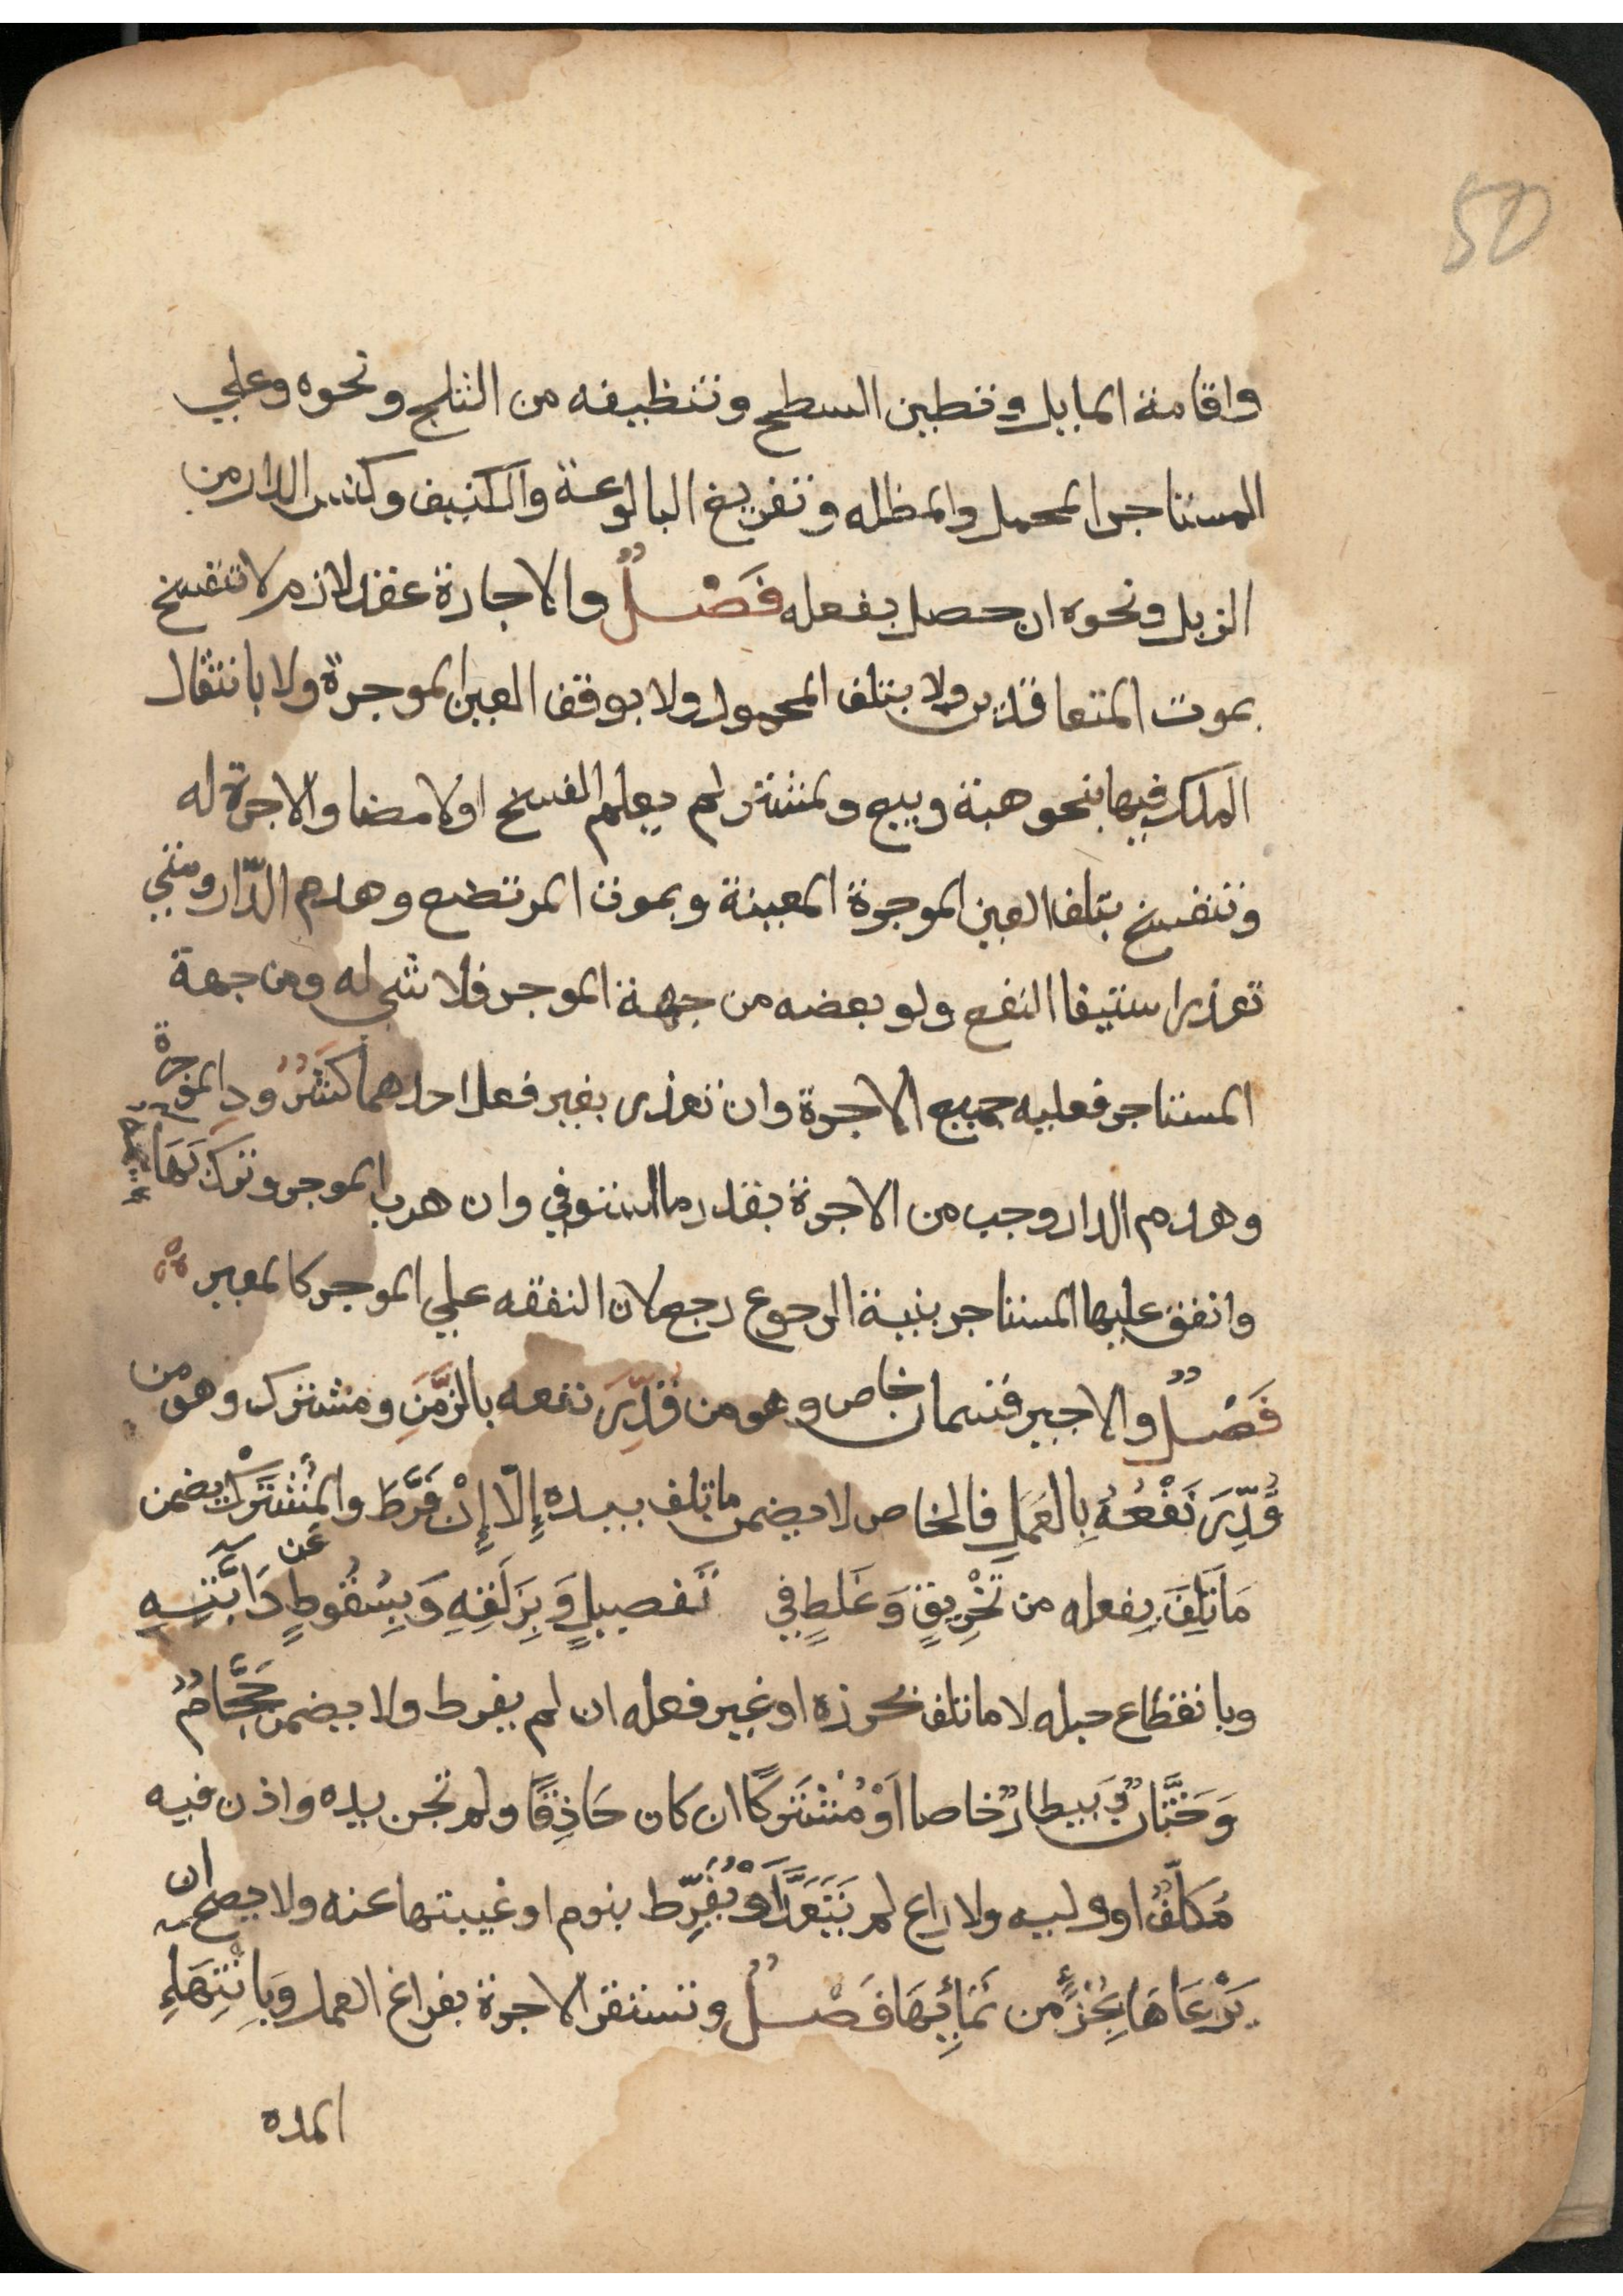 50
واقامة المايل وتطين السطح وتنظيفه من الثلج ونحوه وعلي
المستاجر المحمل والمظله وتفريغ البالوعة والكنيف وكنس الدار من
الزبل ونحوه ان حصل بفعله فَصْلٌ والاجارة عقد لازم لا تنفسخ
بموت المتعاقدين ولا بتلف المحمول ولا بوقف العين الموجرة ولا بانتقال
الملك فيها بنحو هبة وبيع ولمشتر لم يعلم الفسخ او الامضا والاجرة له
وتنفسخ بتلف العين الموجرة المعينة وبموت المرتضع وهدم الدّار ومتي
تعذر استيفا النفع ولو بعضه من جهة الموجر فلا شي له ومن جهة
المستاجر فعليه جميع الاجرة وان تعذر بغير فعل احدهما كشرُود الموجرة
وهدم الدار وجب من الاجرة بقدر ما استوفي وان هرب الموجر وترك بَهَا
وانفق عليها المستاجر بنية الرجوع رجع لان النفقه علي الموجر كالمعير
فَصْلٌ والاجير قسمان خاص وهو من قُدِّرَ نفعه بالزَّمَنِ ومشترك وهو من
قُدِّرَ نَفْعُهُ بِالعَمَلِ فالخاص لا يضمن ما تلف بيده إِلّا إِنْ فَرَّطَ والمُشْتَرَكْ يضمن
مَا تَلِفَ بفعله من تَخْرِيقٍ وَغَلَطٍ في تَفصيلٍ وَبِزَلَقِهِ وَبِسُقُوطٍ عَن دَابَّتِهِ
وبانقطاع حبله لا ما تلف بحرزه او غير فعله ان لم يفرط ولا يضمن حَجَّامٌ
وَخَتَّانٌ وَبَيطارٌ خاصا اَوْ مُشْتَرَكًا ان كان حَاذِقًا ولم تجن يده واذن فيه
مُكَلَّفٌ او وليه ولا راع لم يَتَعَدَّ اَوْ يُفَرِّط بنوم او غيبتها عنه ولا يصح ان
يَرْعَاهَا بِجُزْءٍ من نَمَائِهَا فَصْلٌ وتستقر الاجرة بفراغ العمل وَبِانْتِهَاءِ
المده